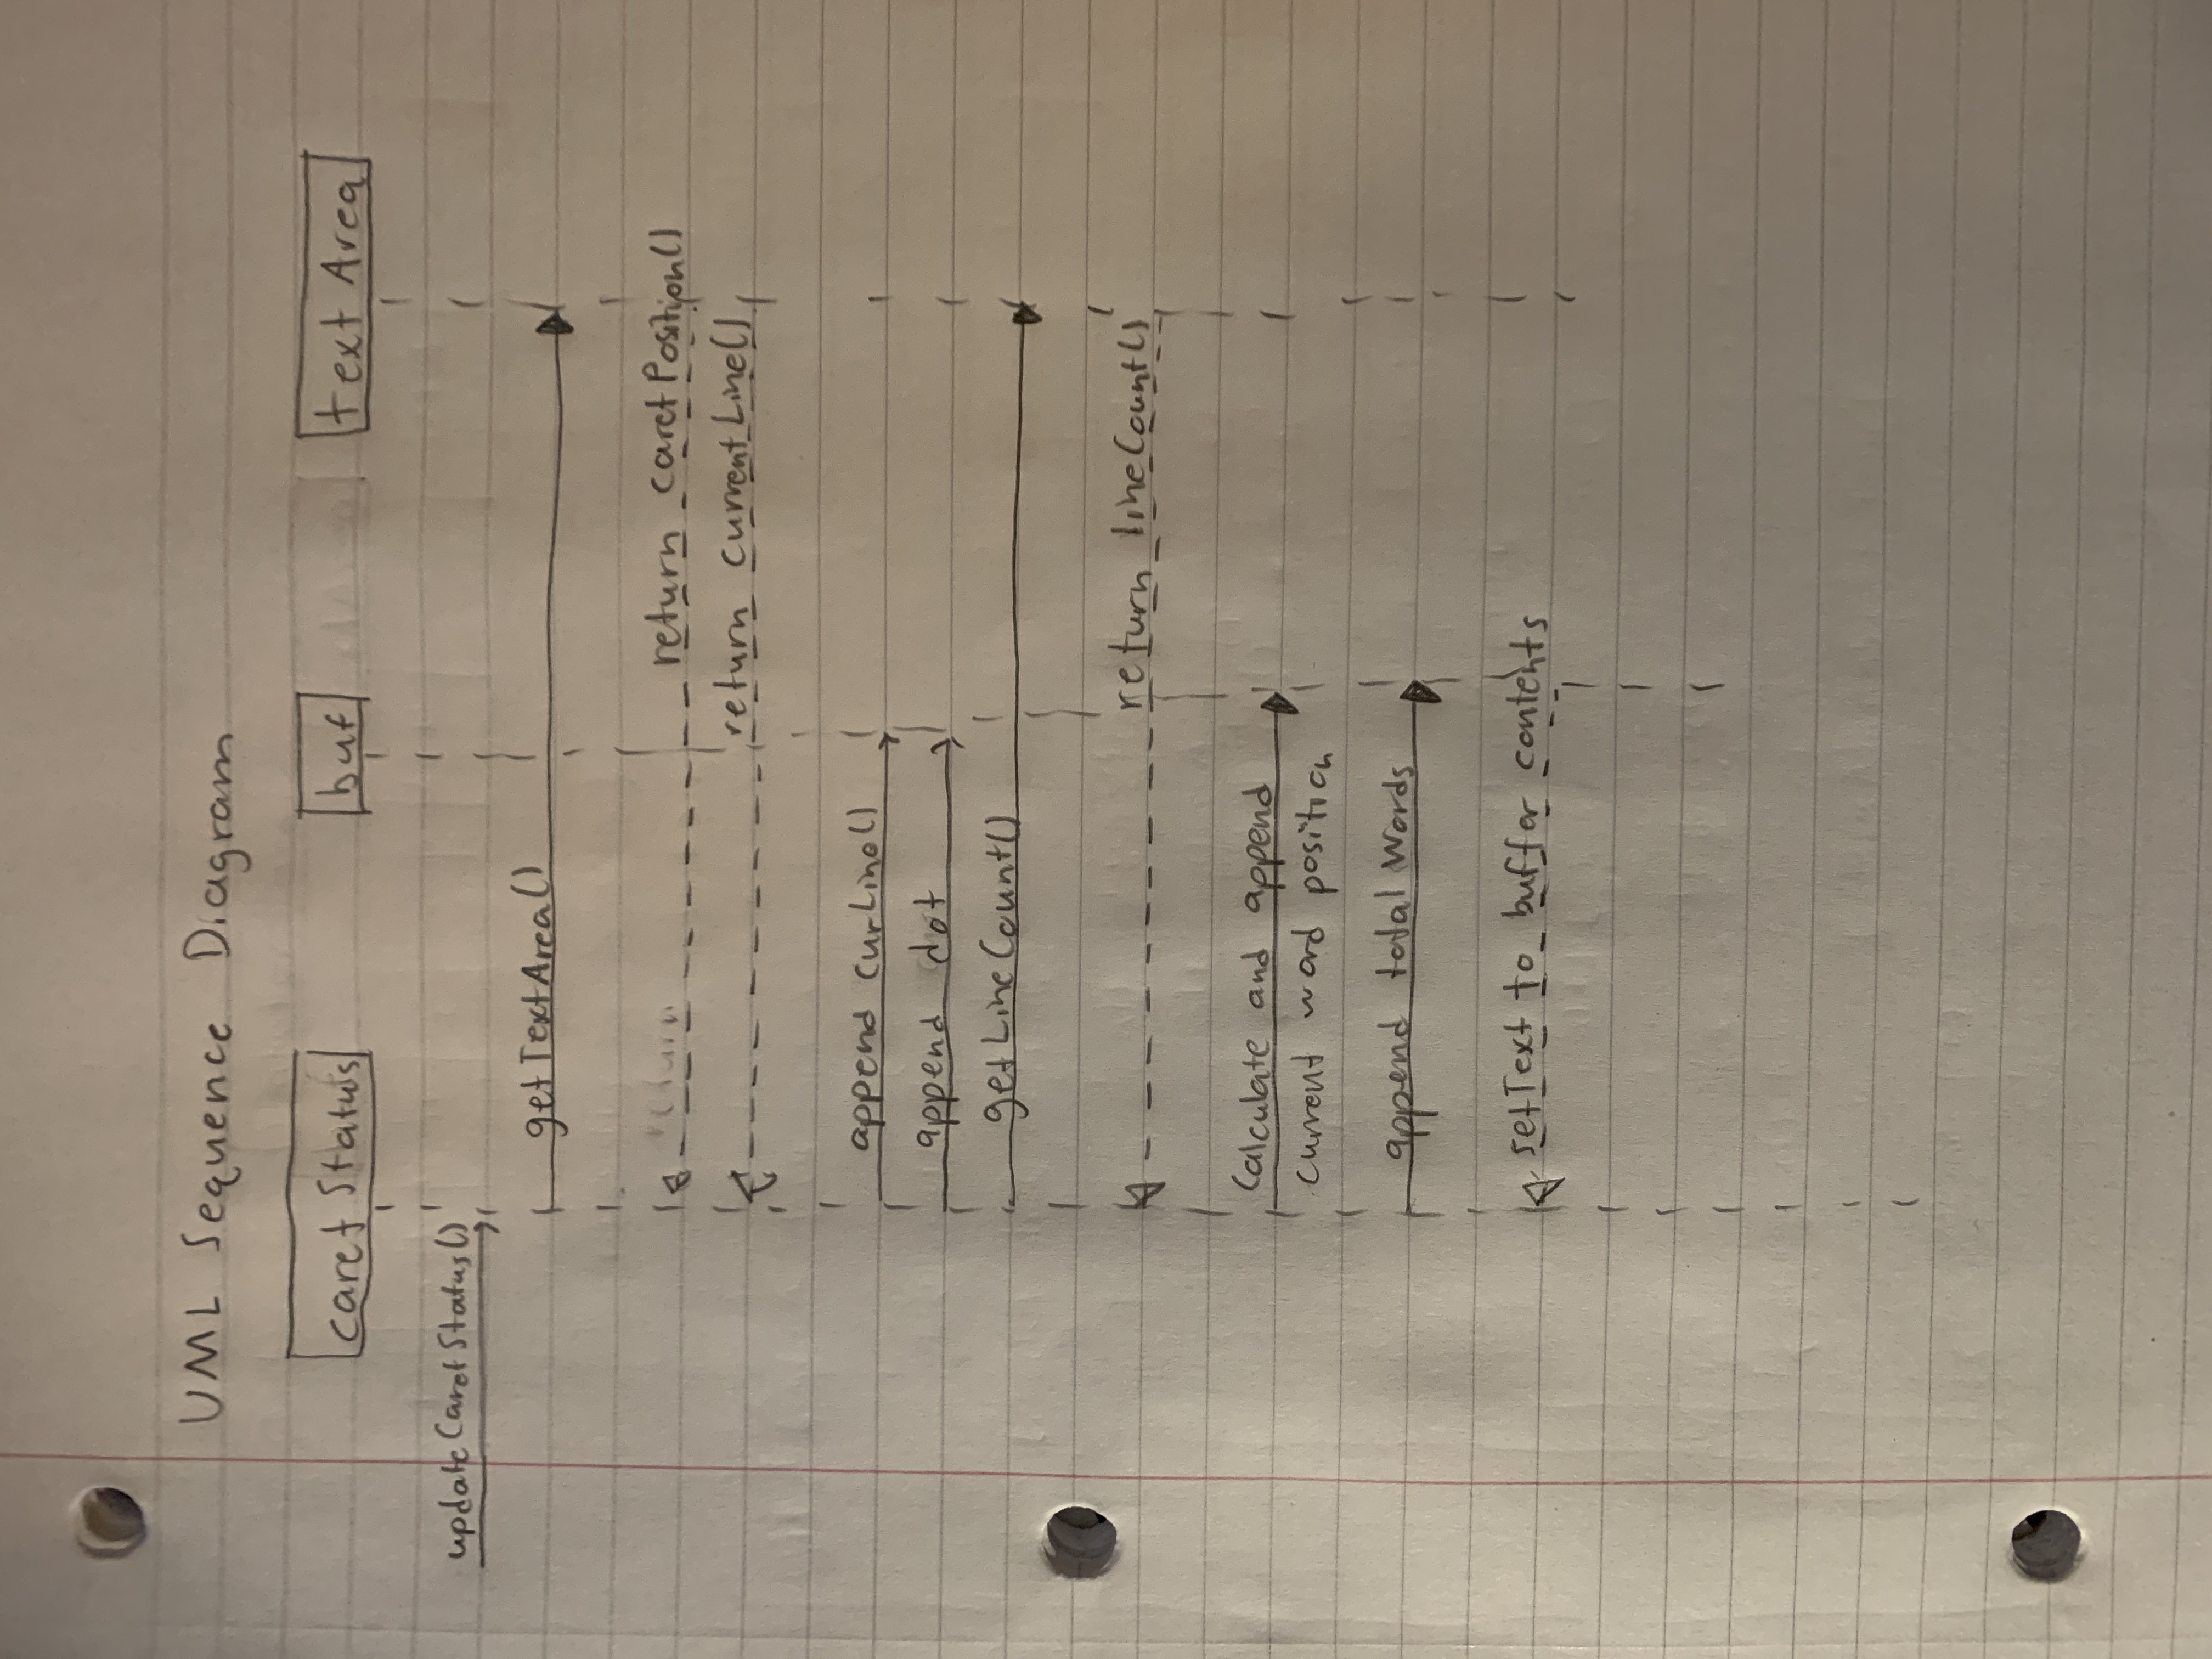 UML Sequence Diagram
caretStatus buf textArea
updateCaretStatus()
getTextArea()
return return caretPosition()
return currentLine()
append curLine()
append dot
getLineCount()
return lineCount()
Calculate and append
current word position
append total Words
setText to buffer contents